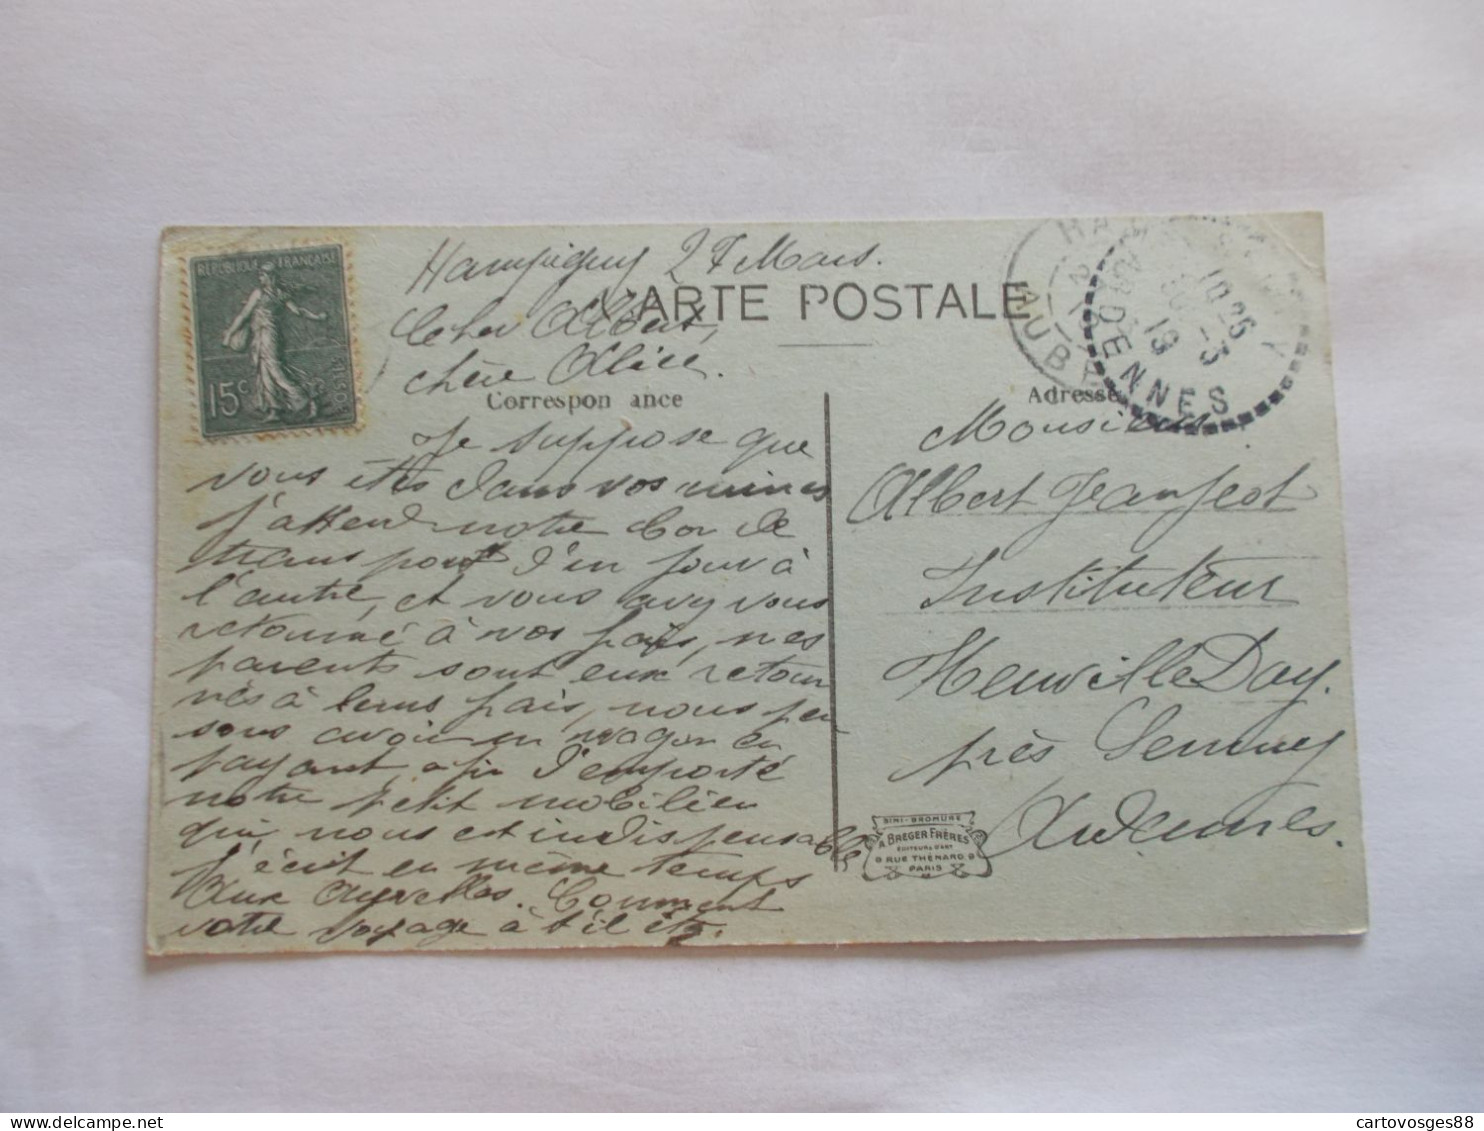 RÉPUBLIQUE FRANÇAISE
15c
POSTES
Hampigny 27 Mars.
CARTE POSTALE
Cher Albert,
chère Alice.
Correspondance
Je suppose que
vous êtes dans vos ruines
j'attend notre bon de
transport d'un jour à
l'autre, et vous avez vous
retourné à vos pais, mes
parents sont eux retour
nés à leurs pais, nous pen
sons avoir un wagon en
payant, afin d'emporté
notre petit mobilier
qui nous est indispensable
j'écrit en même temps
aux Ayvelles. Comment
votre voyage à t'il été.
Adresse
Monsieur
Albert Jeanjeot
Instituteur
Neuville Day.
près Semuy
Ardennes.
HAMPIGNY
AUBE
ARDENNES
SIMI-BROMURE
A. BREGER FRÈRES
ÉDITEURS D'ART
9 RUE THÉNARD 9
PARIS
cartovosges88